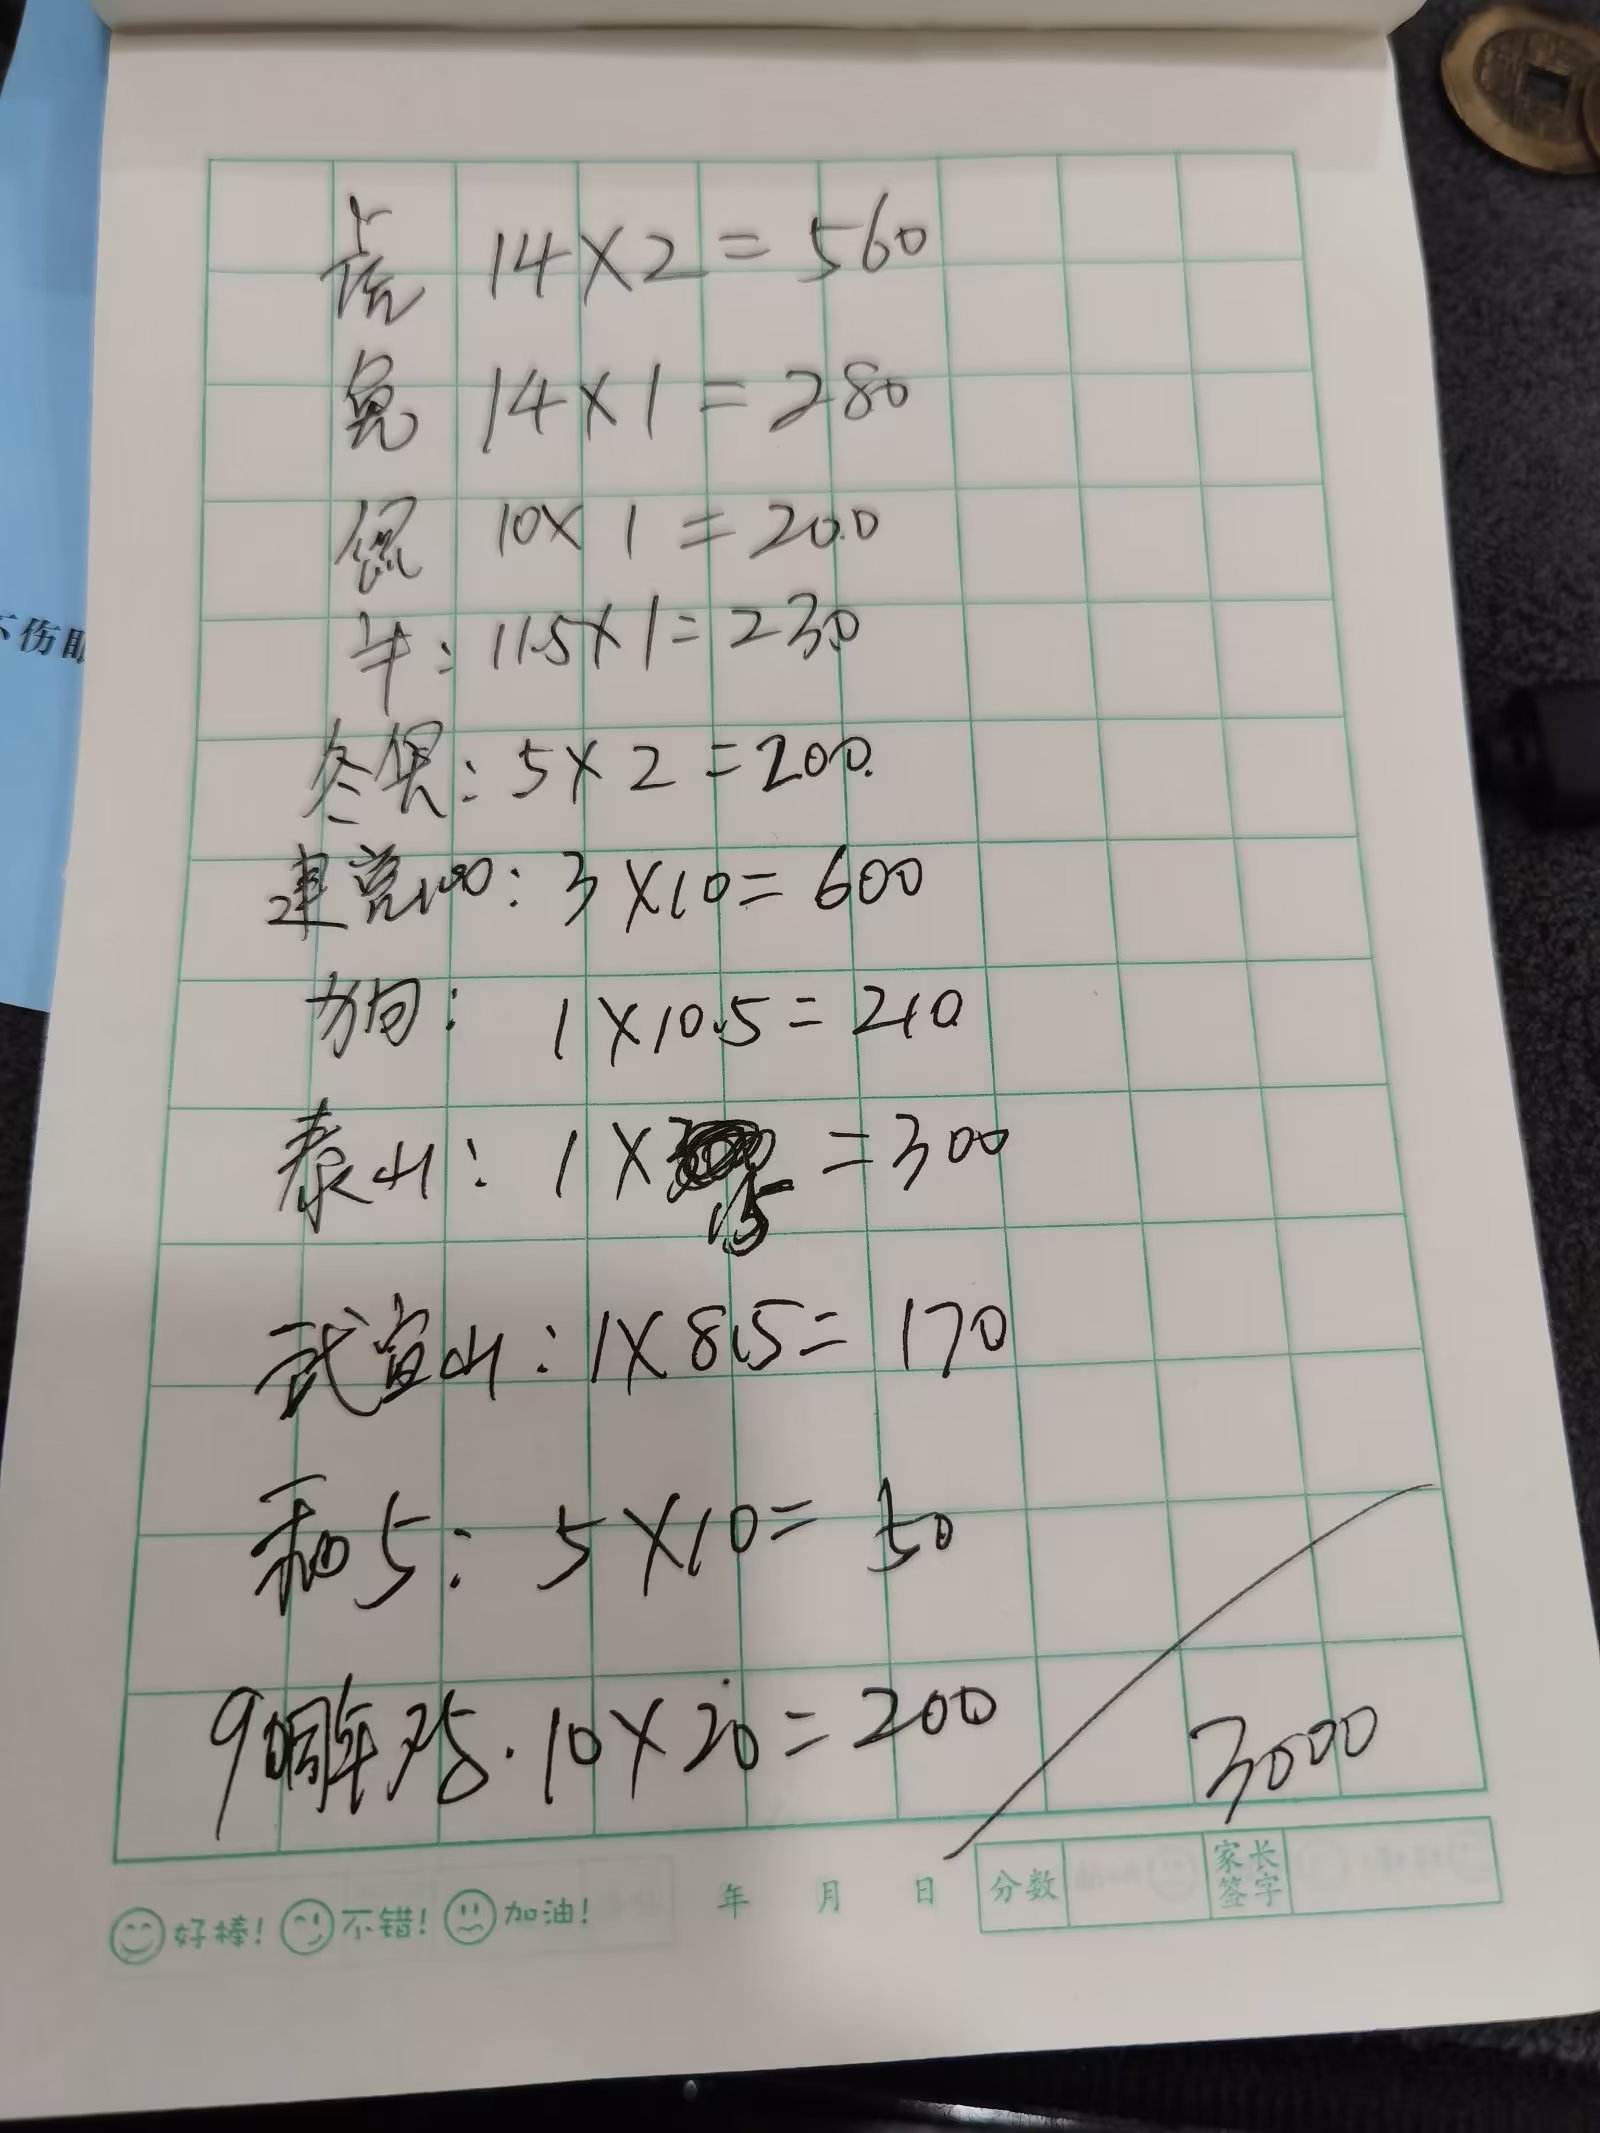 虎 14×2=560
兔 14×1=280
鼠 10×1=200
牛:11.5×1=230
冬奥:5×2=200.
建党100:3×10=600
1×10.5=210
泰山:1×15=300
武宣山:1×8.5=170
和5:5×10=50
9周年 10×20=200
3000
不伤眼
好棒! 不错! 加油! 年 月 日 分数 家长签字